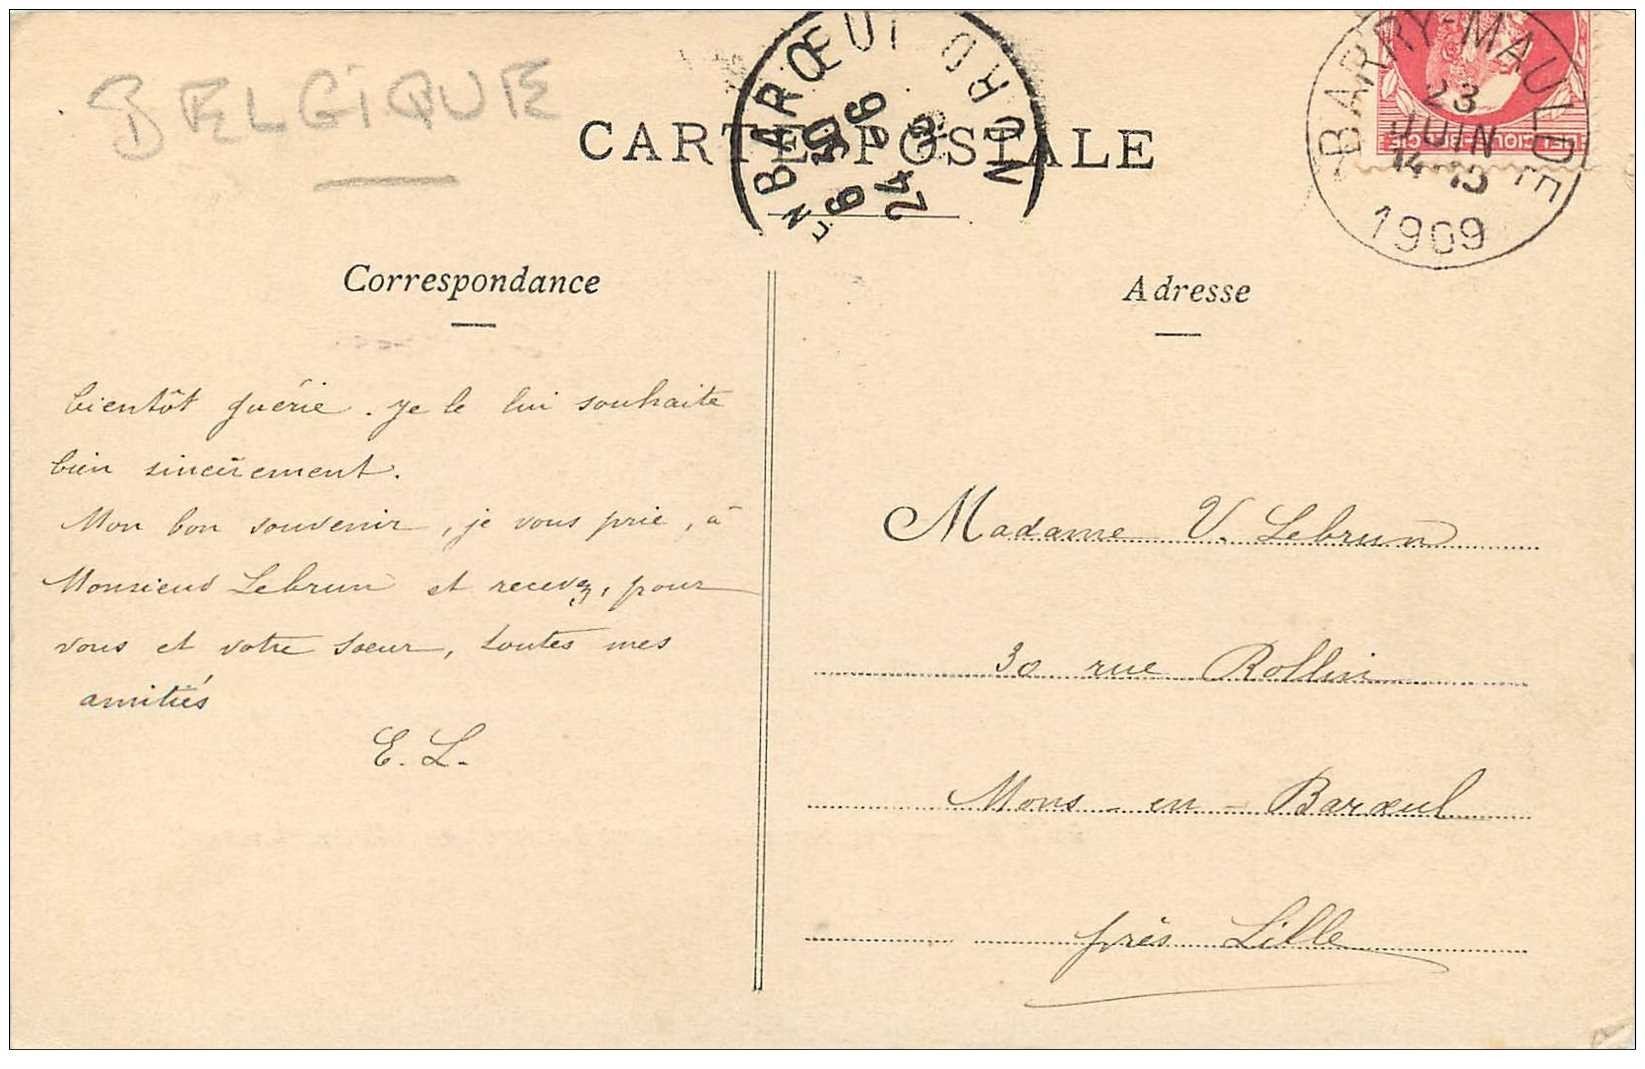 BELGIQUE
CARTE POSTALE
BARŒUL NORD
BARRY-MAULDE
23
JUIN
1909
Correspondance
Adresse
bientôt guérie. Je le lui souhaite
bien sincèrement.
Mon bon souvenir, je vous prie, à
Monsieur Lebrun et recevez, pour
vous et votre sœur, toutes mes
amitiés
E. L.
Madame V. Lebrun
30 rue Rollin
Mons-en-Barœul
près Lille